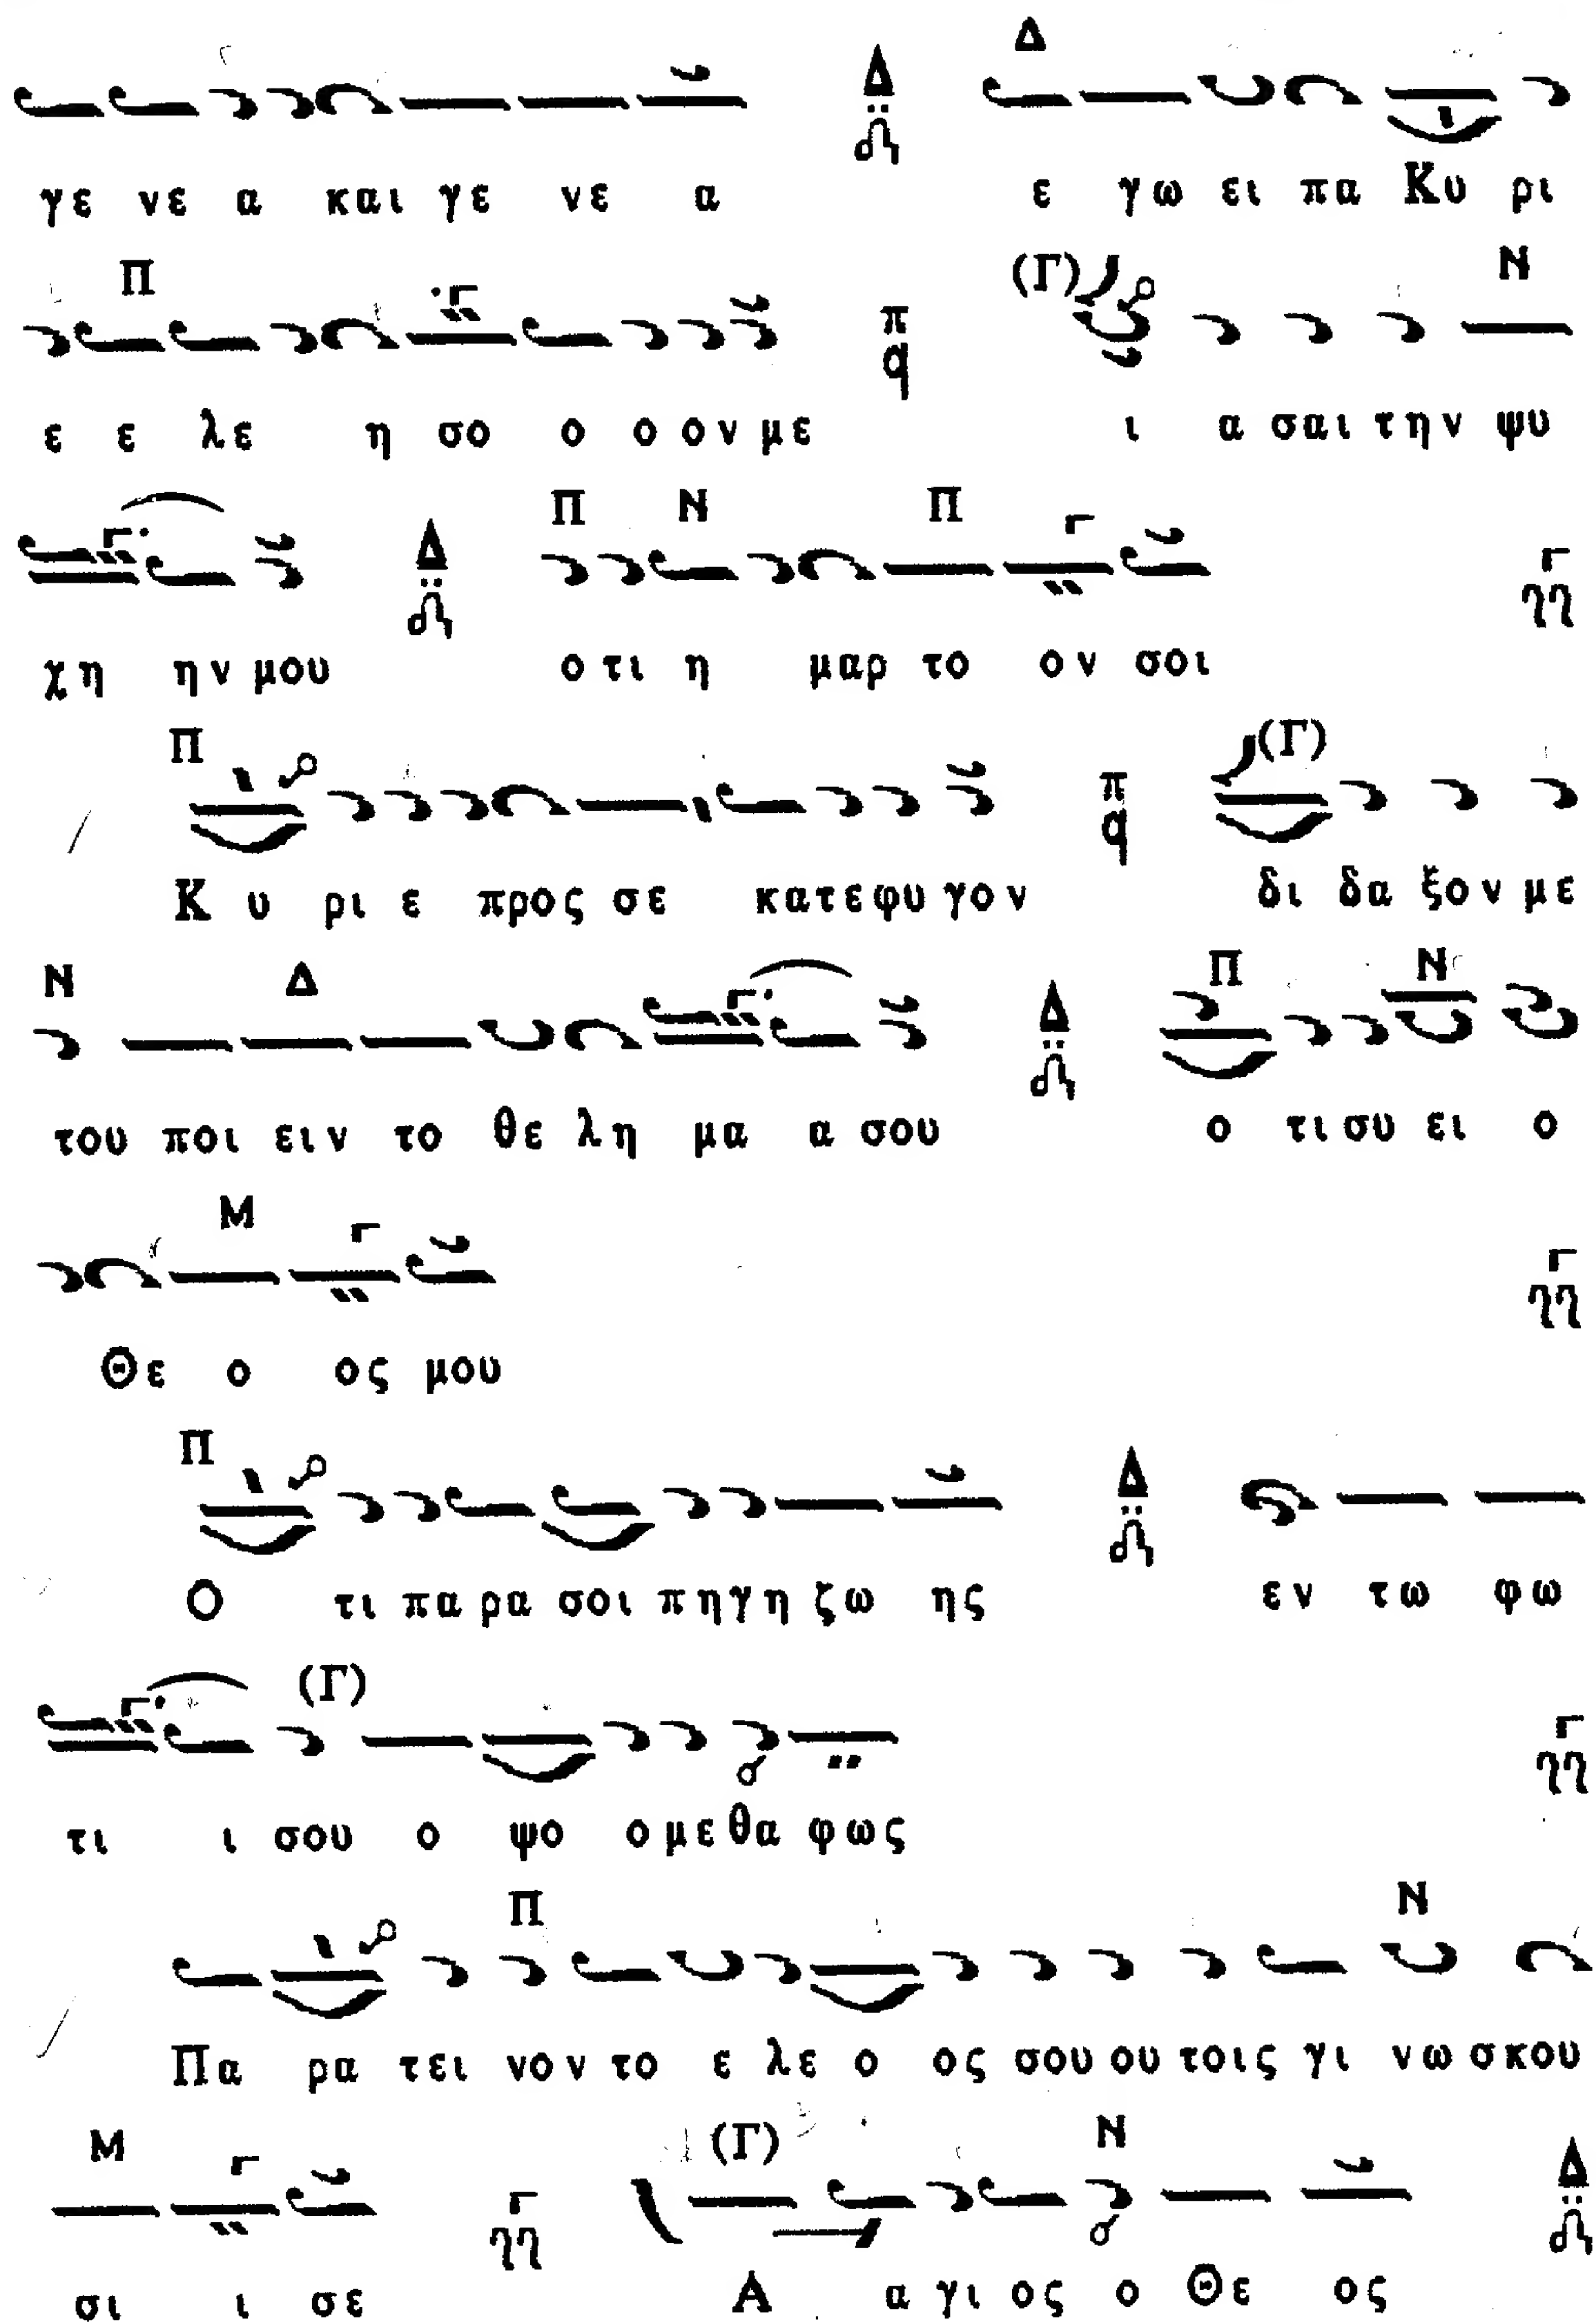 Δ
γε νε α και γε νε α ε γω ει πα Κυ ρι
Π (Γ) Ν
ε ε λε η σο ο ο ον με ι α σαι την ψυ
Π Ν Π
χη ην μου ο τι η μαρ το ον σοι
Π (Γ)
Κ υ ρι ε προς σε κατεφυγον δι δα ξον με
Ν Δ Π Ν
του ποι ειν το θε λη μα α σου ο τι συ ει ο
Μ
Θε ο ος μου
Π
Ο τι πα ρα σοι πηγη ζω ης εν τω φω
(Γ)
τι ι σου ο ψο ομεθα φως
Π Ν
Πα ρα τει νον το ε λε ο ος σου ου τοις γι νω σκου
Μ (Γ) Ν
σι ι σε Α α γι ος ο Θε ος